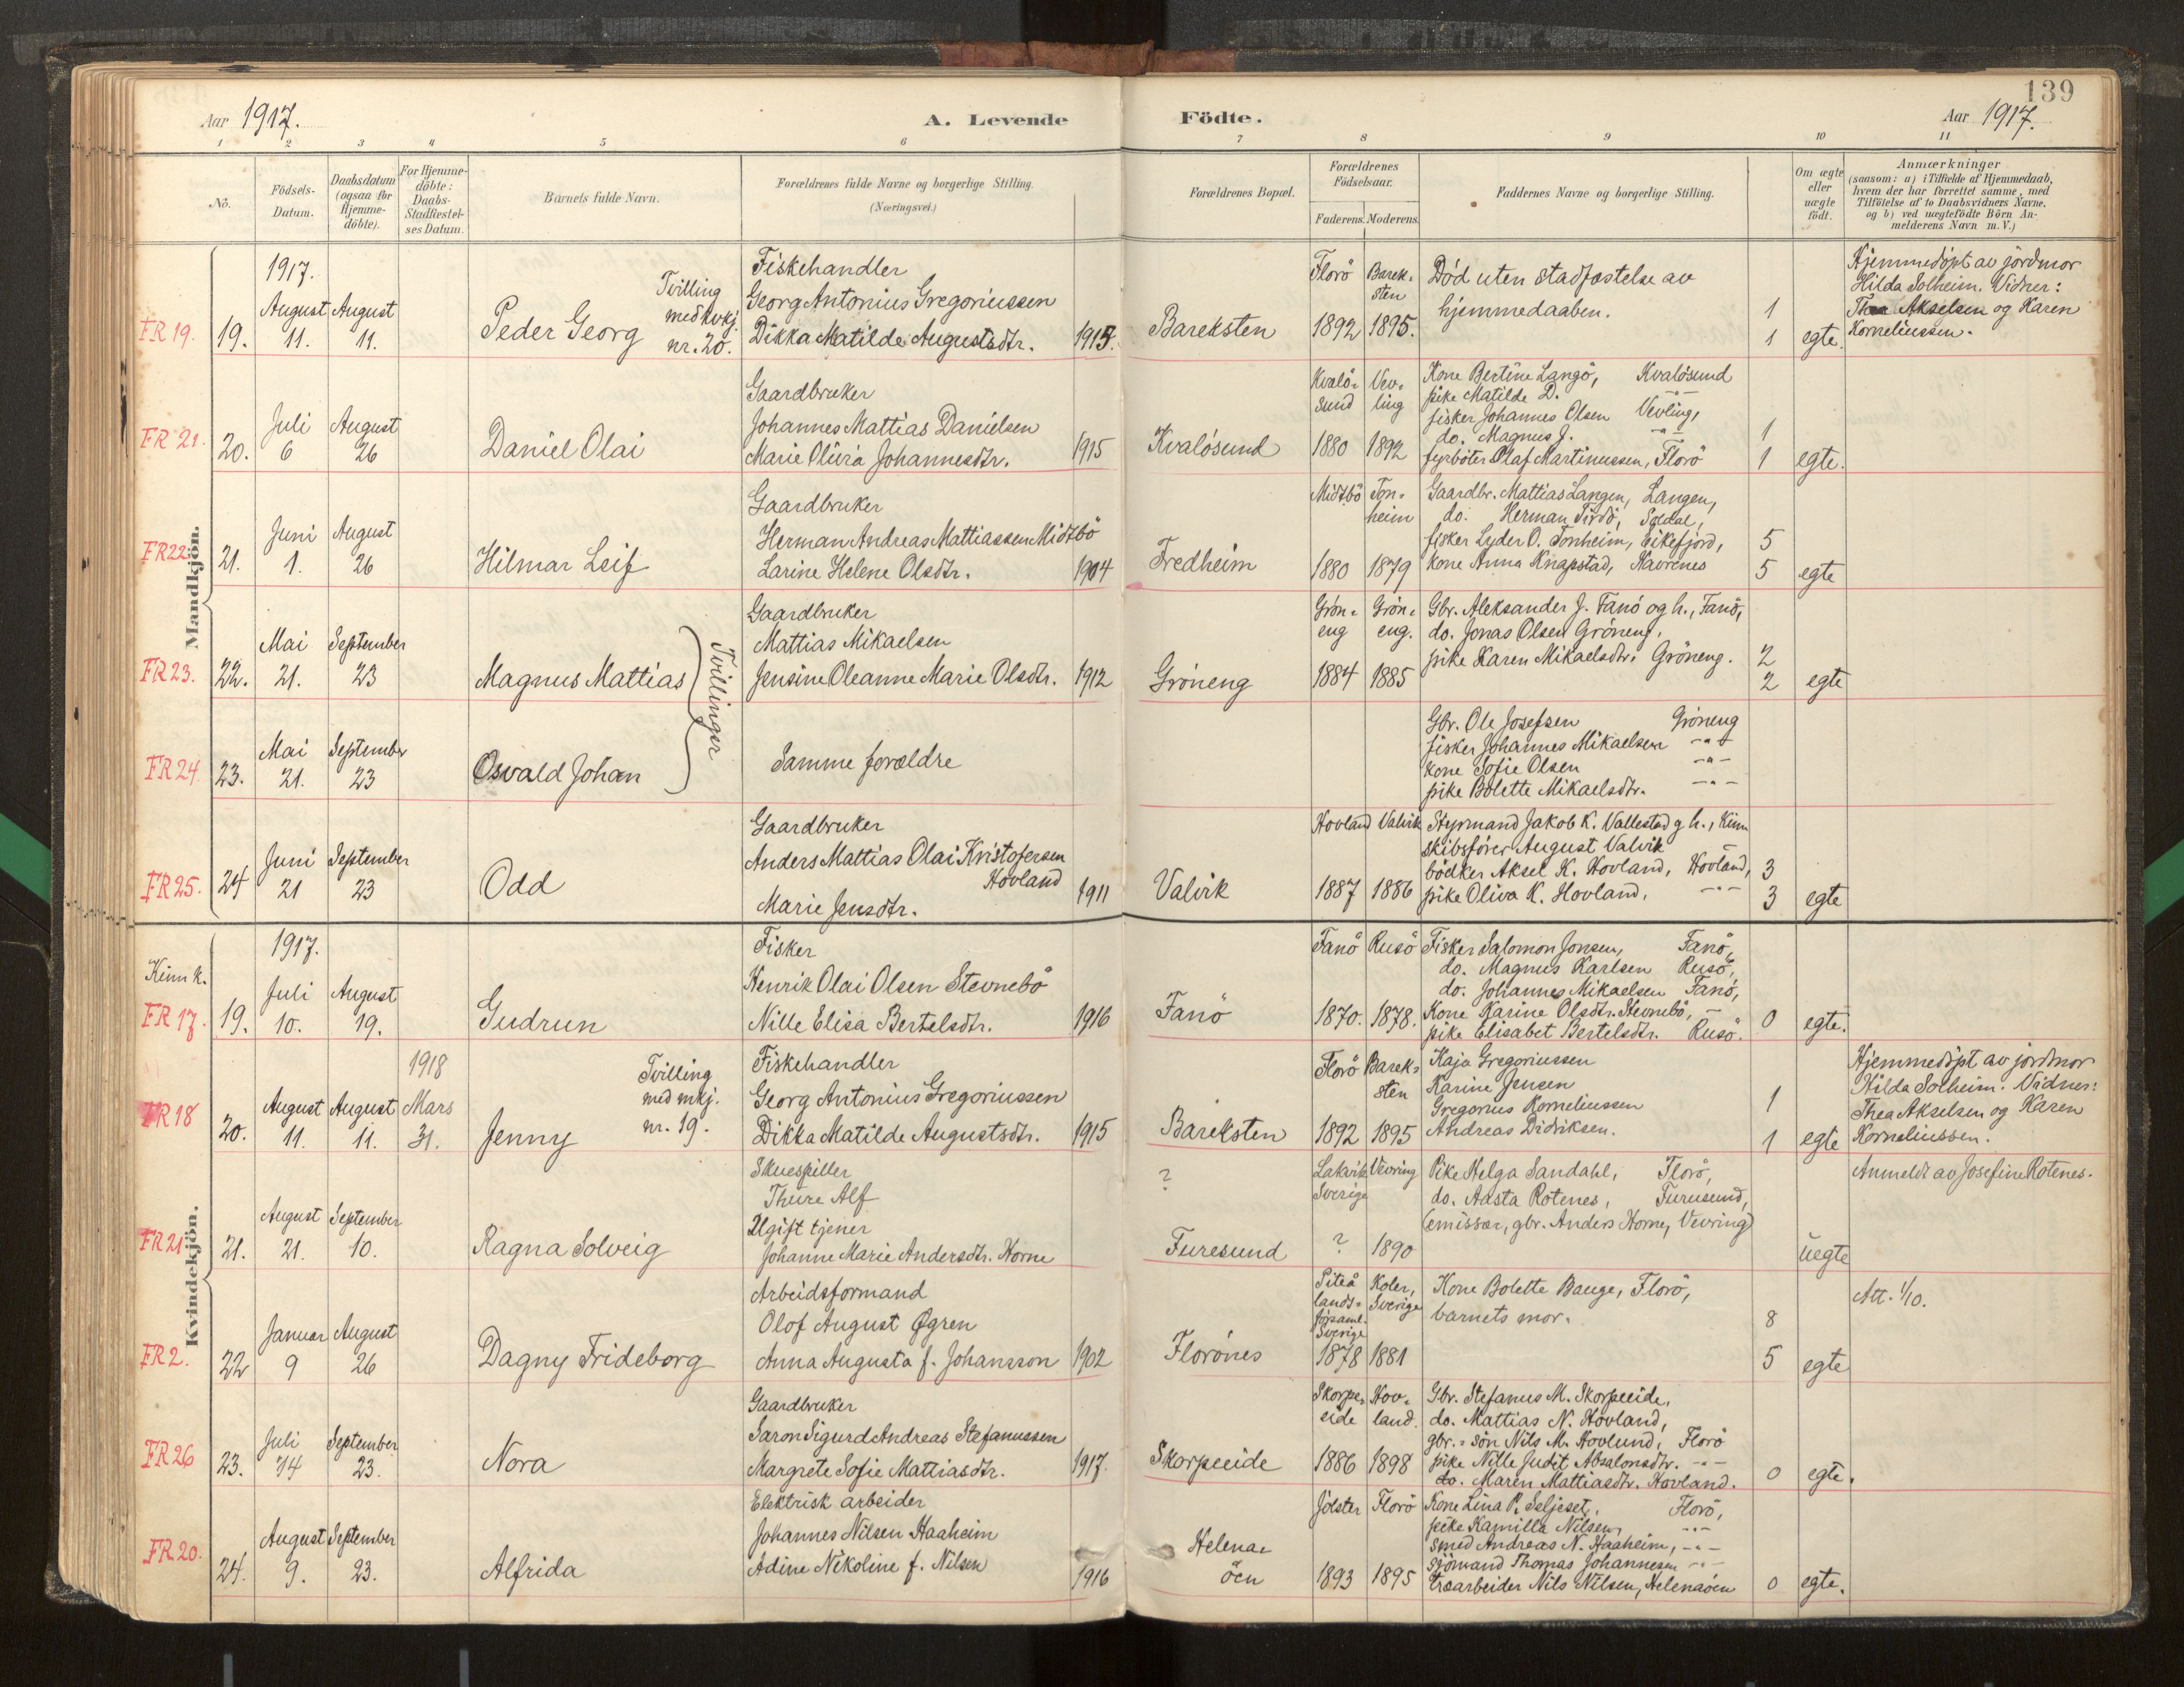 139
Aar 1917.
A. Levende Födte.
Aar 1917.
1 2 3 4 5 6 7 8 9 10 11
No.
Födsels-Datum.
Daabsdatum (ogsaa for Hjemme-döbte).
For Hjemme-döbte: Daabs-Stadfæstel-ses Datum.
Barnets fulde Navn.
Forældrenes fulde Navne og borgerlige Stilling.
(Næringsvei.)
Forældrenes Bopæl.
Forældrenes Födselsaar.
Faderens. Moderens.
Faddernes Navne og borgerlige Stilling.
Om ægte eller uægte født.
Anmærkninger
(saasom: a) i Tilfælde af Hjemmedaab, hvem der har forrettet samme, med Tilföielse af to Daabsvidners Navne, og b) ved uægtefödte Börn An-melderens Navn m. V.)
Mandkjön.
1917.
FR 19. 19. August 11. August 11.
Peder Georg
Tvilling med kvkj. nr. 20.
Fiskehandler
Georg Antonius Gregoriussen
Dikka Matilde Augustsdtr. 1915.
Bareksten
Florö 1892 Barek-sten 1895.
Död uten stadfæstelse av
hjemmedaaben.
1
1 egte.
Hjemmedöpt av jordmor
Hilda Solheim. Vidner:
Thea Akselsen og Karen
Korneliussen.
FR 21. 20. Juli 6 August 26
Daniel Olai
Gaardbruker
Johannes Mattias Danielsen
Marie Olivia Johannesdtr. 1915
Kvalösund
Kvalö-sund 1880 Vev-ling 1892
Kone Bertine Langö, Kvalösund
pike Matilde D. -"-
fisker Johannes Olsen Vevling,
do. Magnus J. -"-
fyrböter Olaf Martinussen, Florö
1
1 egte.
FR 22 21. Juni 1. August 26
Hilmar Leif
Gaardbruker
Herman Andreas Mattiassen Midtbö
Larine Helene Olsdtr. 1904
Fredheim
Midtbö 1880 Ton-heim 1879
Gaardbr. Mattias Langen, Langen,
do. Herman
fisker Lyder O. Tonheim, Eikefjord,
kone Anna Knapstad, Navrenes
5
5 egte
FR 23. 22. Mai 21. September 23
Magnus Mattias
Tvillinger
Gaardbruker
Mattias Mikaelsen
Jensine Oleanne Marie Olsdtr. 1912
Gröneng
Grön-eng 1884 Grön-eng. 1885
Gbr. Aleksander J. Fanö og h., Fanö,
do. Jonas Olsen Gröneng,
pike Karen Mikaelsdtr. Gröneng.
2
2 egte
FR 24. 23. Mai 21. September 23
Osvald Johan
Samme forældre
Gbr. Ole Josefsen Gröneng
fisker Johannes Mikaelsen -"-
kone Sofie Olsen -"-
pike Bolette Mikaelsdtr. -"-
FR 25. 24 Juni 21 September 23
Odd
Gaardbruker
Anders Mattias Olai Kristofersen
Hovland
Marie Jensdtr. 1911
Valvik
Hovland 1887 Valvik 1886
Styrmand Jakob K. Vallestad og h., Kinn
skibsförer August Valvik
bödker Aksel K. Hovland, Hovland,
pike Oliva K. Hovland, -"-
3
3 egte
Kvindekjön.
Kinn k.
1917.
FR 17. 19. Juli 10. August 19.
Gudrun
Fisker
Henrik Olai Olsen Stevnebö
Nille Elisa Bertelsdtr. 1916
Fanö
Fanö 1870. Rusö 1878.
Fisker Salomon Jonsen, Fanö,
do. Magnus Karlsen Rusö,
do. Johannes Mikaelsen Fanö,
Kone Karine Olsdtr. Stevnebö, -
pike Elisabet Bertelsdtr. Rusö.
0 egte.
FR 18 20. August 11. August 11. 1918 Mars 31.
Jenny
Tvilling med mkj. nr. 19.
Fiskehandler
Georg Antonius Gregoriussen
Dikka Matilde Augustsdtr. 1915
Bareksten
Florö 1892 Barek-sten 1895
Kaja Gregoriussen
Karine Jensen
Gregorius Korneliussen
Andreas Didriksen.
1
1 egte
Hjemmedöpt av jordmor
Hilda Solheim. Vidner:
Thea Akselsen og Karen
Korneliussen.
FR 21 21. August 21. September 10.
Ragna Solveig
Skuespiller
Thure Alf
Ugift tjener
Johanne Marie Andersdtr. Horne
?
Furesund
Lakvik Sverige ? Vevring 1890
Pike Helga Sandahl, Florö,
do. Aasta Rotenes, Furusund,
(emissær, gbr. Anders Horne, Vevring)
uegte
Anmeldt av Josefine Rotenes.
FR 2. 22 Januar 9 August 26
Dagny Frideborg
Arbeidsformand
Olof August Øgren
Anna Augusta f. Johansson 1902
Florönes
Piteå lands-församl. Sverige 1878 Koler, Sverige 1881
Kone Bolette Bauge, Florö,
barnets mor.
8
5 egte
Att. 1/10.
FR 26 23. Juli 14 September 23.
Nora
Gaardbruker
Saron Sigurd Andreas Stefanussen
Margrete Sofie Mattiasdtr. 1917.
Skorpeeide
Skorpe-eide 1886 Hov-land. 1898
Gbr. Stefanus M. Skorpeeide,
do. Mattias N. Hovland,
gbr.-sön Nils M. Hovlund, Florö
pike Nille Judit Absalonsdtr. -"-
do. Maren Mattiasdtr. Hovland.
0 egte.
FR 20. 24. August 9. September 23.
Alfrida
Elektrisk arbeider
Johannes Nilsen Haaheim
Adine Nikoline f. Nilsen 1916
Helena-öen
Jölster 1893 Florö 1895
Kone Lina P. Seljeset, Florö,
pike Kamilla Nilsen, -"-
smed Andreas N. Haaheim, -"-
sjömand Thomas Johannesen -"-
træarbeider Nils Nilsen, Helenaöen
0 egte.